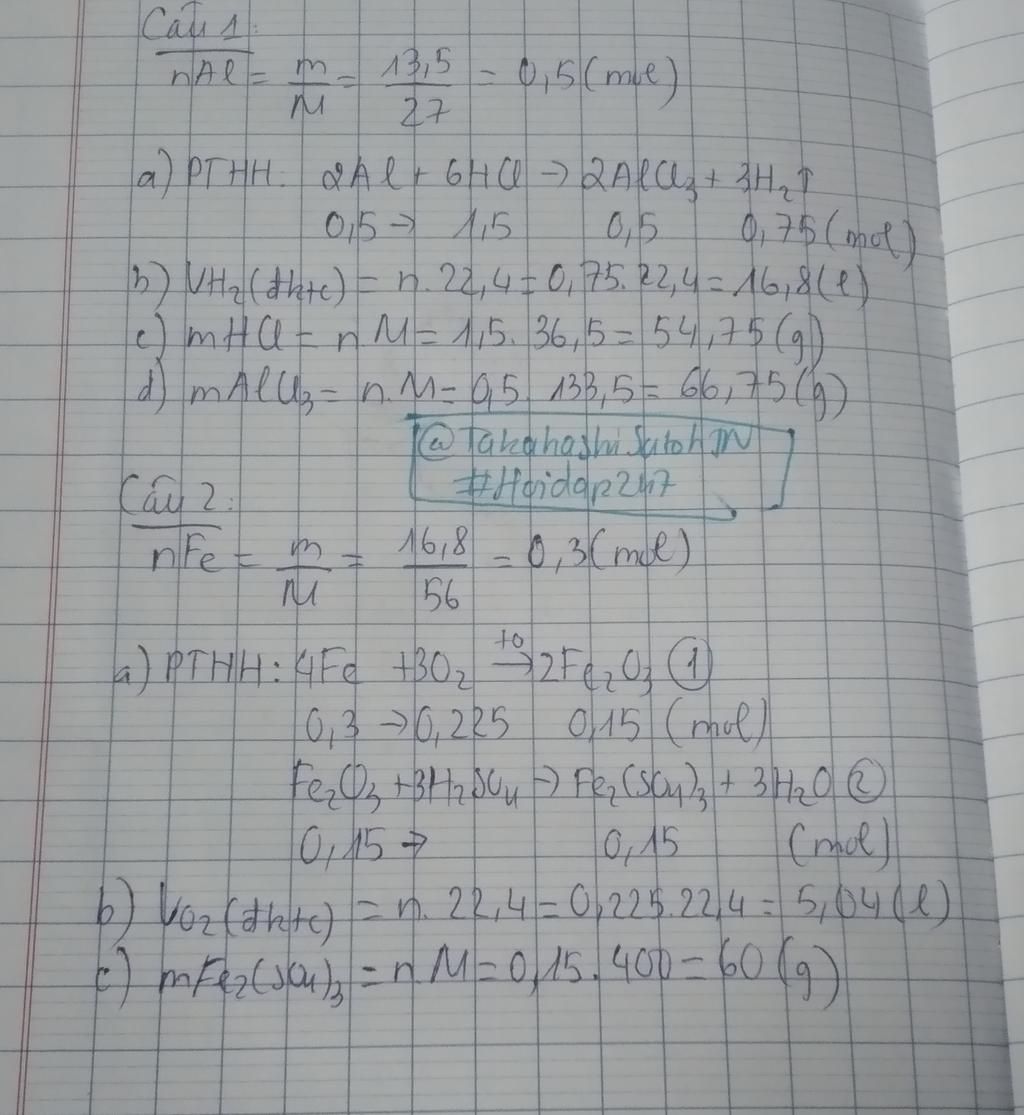 Câu 1:
nAl = m/M = 13,5/27 = 0,5 (mol)
a) PTHH: 2Al + 6HCl → 2AlCl₃ + 3H₂↑
0,5 → 1,5 0,5 0,75 (mol)
b) VH₂(đktc) = n.22,4 = 0,75.22,4 = 16,8 (l)
c) mHCl = n.M = 1,5.36,5 = 54,75 (g)
d) mAlCl₃ = n.M = 0,5.133,5 = 66,75 (g)
@TakahashiSatohJN
Câu 2:
nFe = m/M = 16,8/56 = 0,3 (mol)
a) PTHH: 4Fe + 3O₂ →(t⁰) 2Fe₂O₃ ①
0,3 → 0,225 0,15 (mol)
Fe₂O₃ + 3H₂SO₄ → Fe₂(SO₄)₃ + 3H₂O ②
0,15 → 0,15 (mol)
b) VO₂(đktc) = n.22,4 = 0,225.22,4 = 5,04 (l)
c) mFe₂(SO₄)₃ = n.M = 0,15.400 = 60 (g)